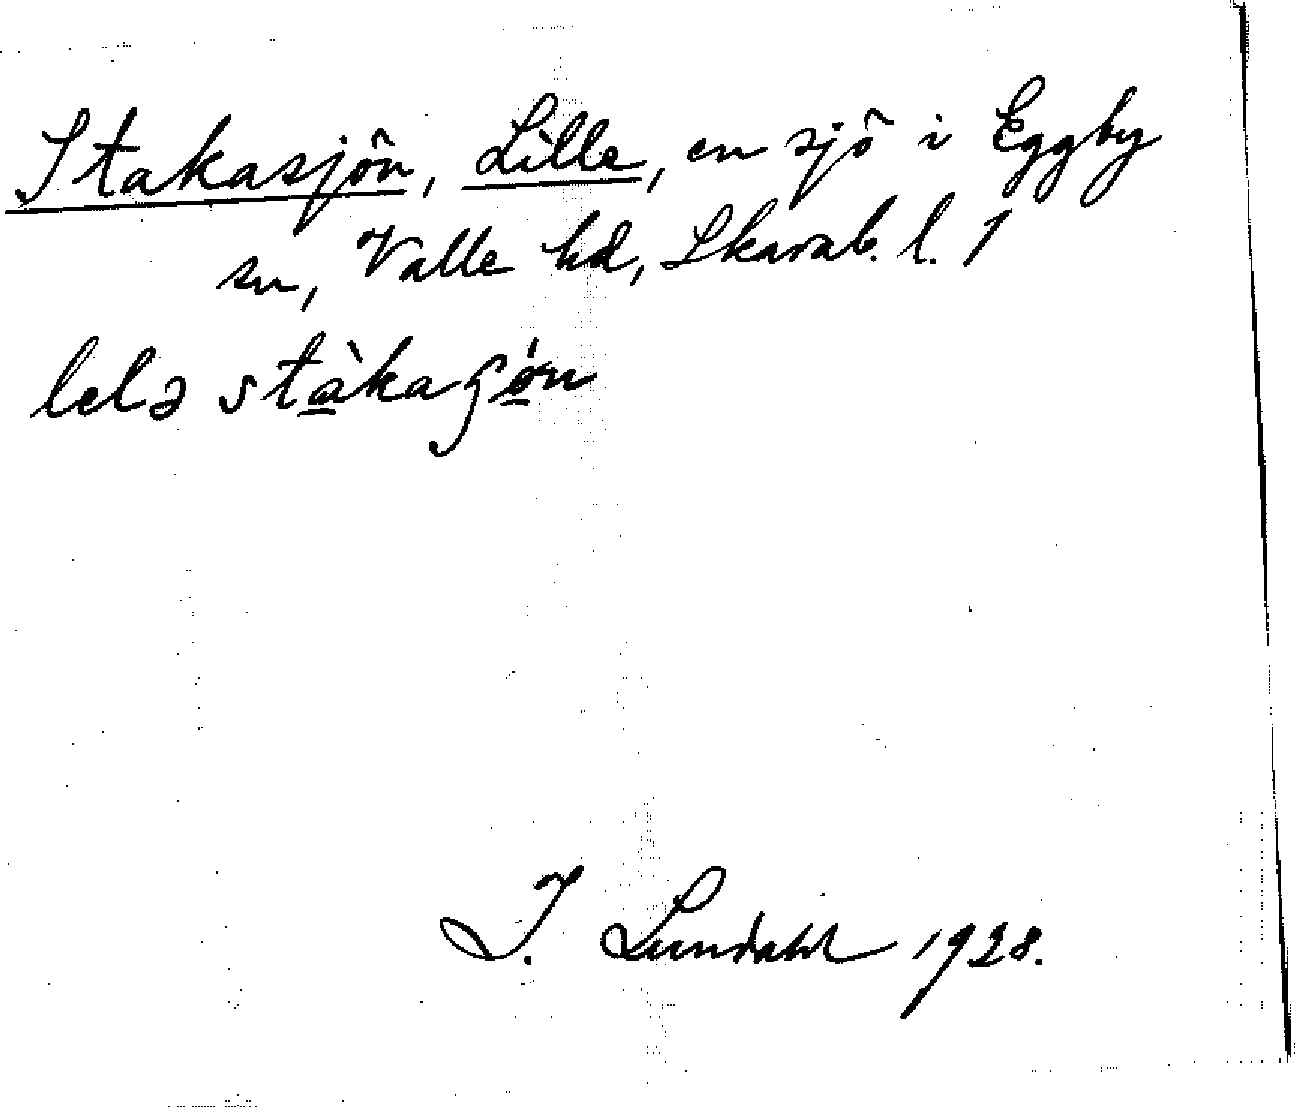 Stakasjön, Lille, en sjö i Eggby
sn, Valle hd, Skarab. l. 1
lelə stàkaʂón
I. Lundahl 1928.